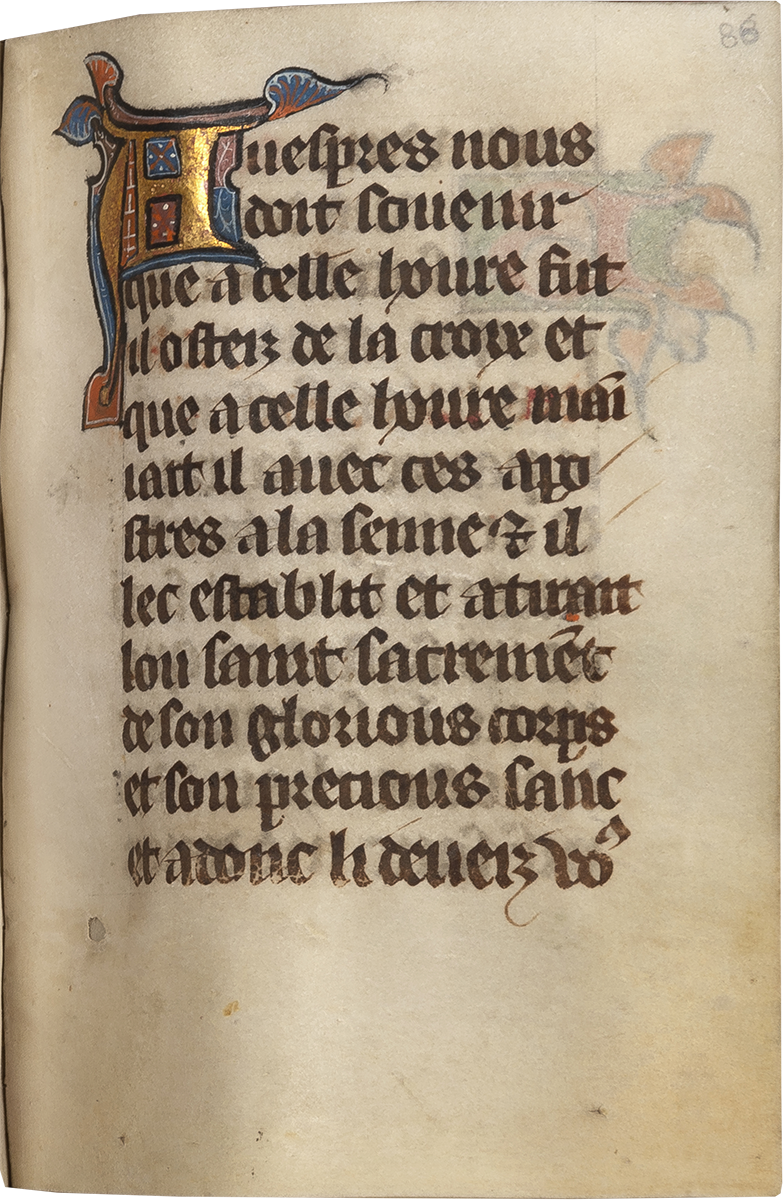 88
A uespres nous
doit souenir
que a celle houre fut
il osteiz de la croix et
que a celle houre mãi
iait il auec ces apo
stres a la senne ⁊ il
lec establit et atirait
lou saint sacremẽt
de son glorious corps
et son precious sanc
et adonc li deueiz voꝰ